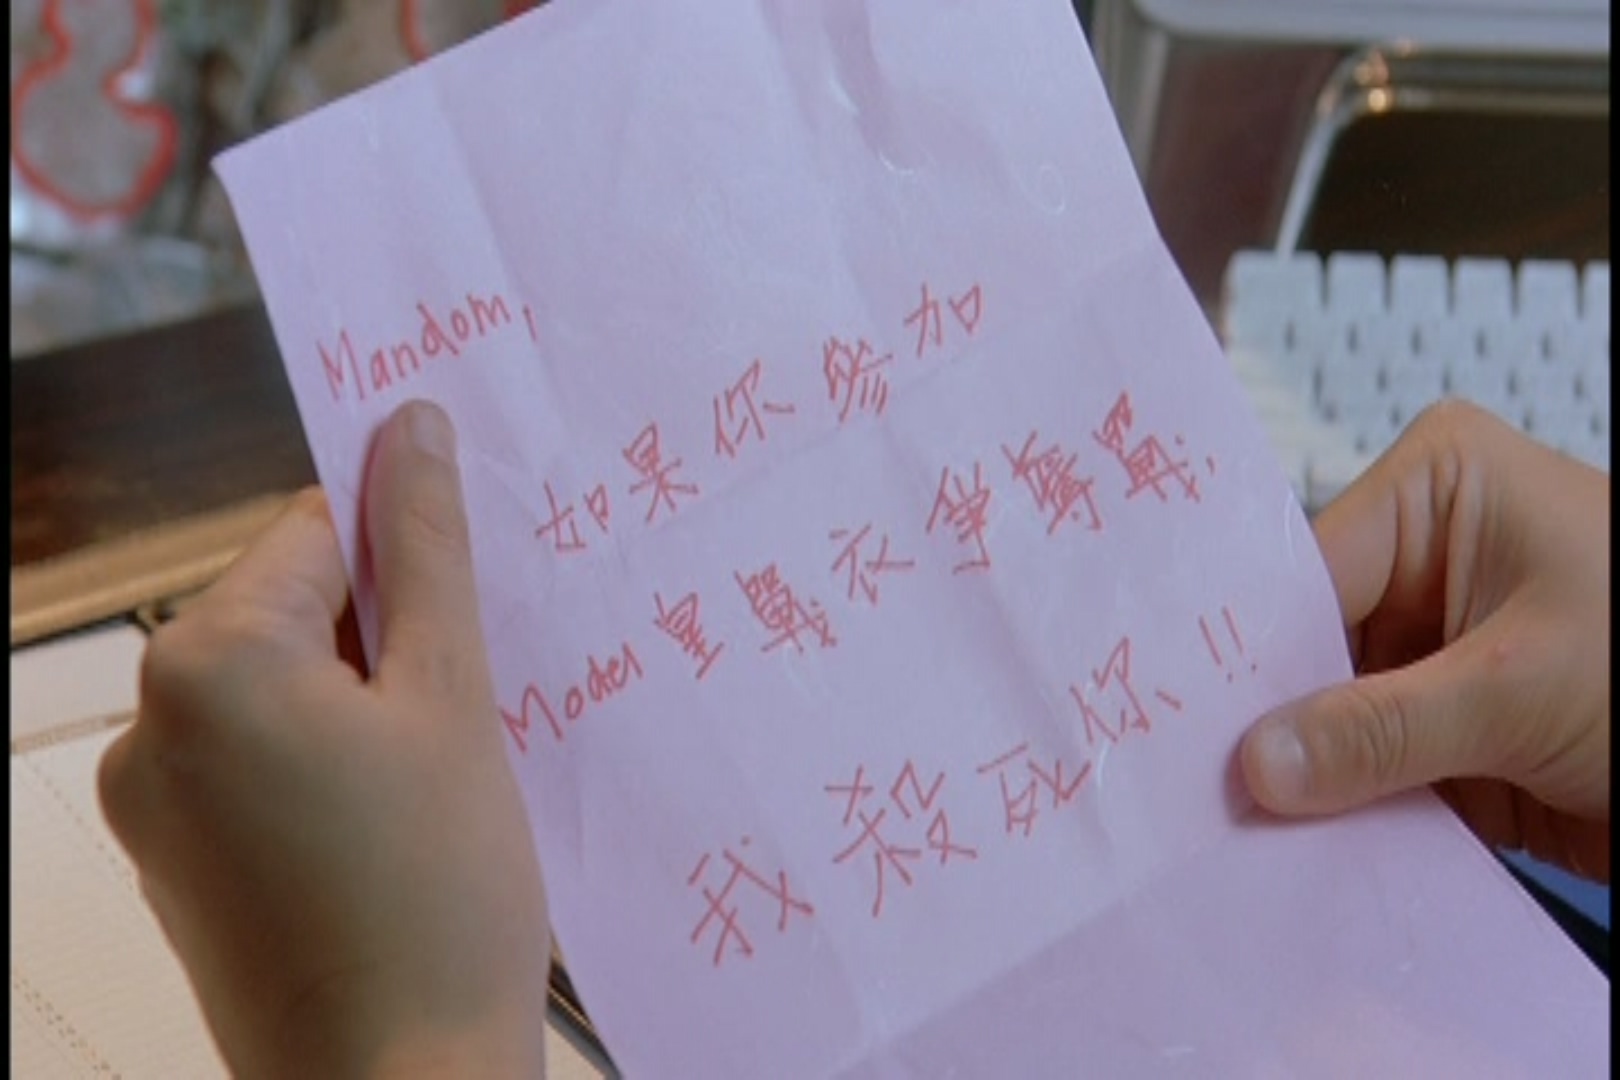 Mandom,
如果你參加
Model皇戰衣爭奪戰,
我殺死你!!